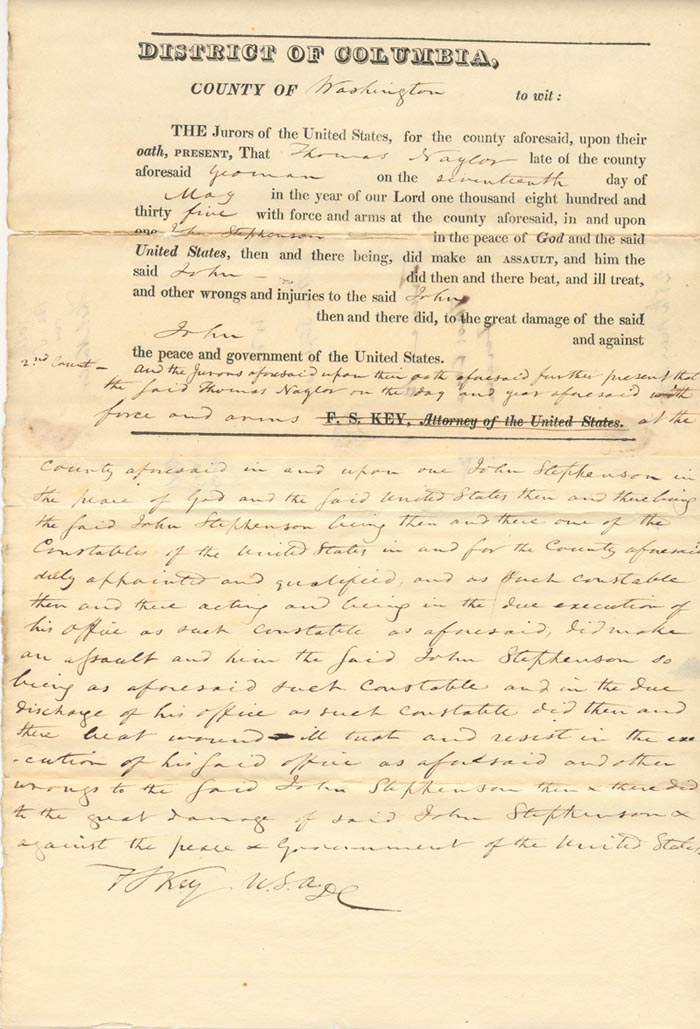 DISTRICT OF COLUMBIA,
COUNTY OF Washington to wit:
THE Jurors of the United States, for the county aforesaid, upon their
oath, PRESENT, That Thomas Naylor late of the county
aforesaid yeoman on the seventeenth day of
May in the year of our Lord one thousand eight hundred and
thirty five with force and arms at the county aforesaid, in and upon
one John Stephenson in the peace of God and the said
United States, then and there being, did make an ASSAULT, and him the
said John did then and there beat, and ill treat,
and other wrongs and injuries to the said John
then and there did, to the great damage of the said
John and against
the peace and government of the United States.
2nd Count – And the Jurors aforesaid upon their oath aforesaid further present that
the said Thomas Naylor on the day and year aforesaid with
force and arms F. S. KEY, Attorney of the United States. at the
County aforesaid in and upon one John Stephenson in
the peace of God and the said United States then and there being
the said John Stephenson being then and there one of the
Constables of the United States in and for the County aforesaid
duly appointed and qualified, and as such constable
then and there acting and being in the due execution of
his office as such constable as aforesaid, did make
an assault and him the said John Stephenson so
being as aforesaid such Constable and in the due
discharge of his office as such Constable did then and
there beat wound ill treat and resist in the exe
-cution of his said office as aforesaid and other
wrongs to the said John Stephenson then & there did
to the great damage of said John Stephenson &
against the peace & Government of the United States.
F S Key U.S.A. DC